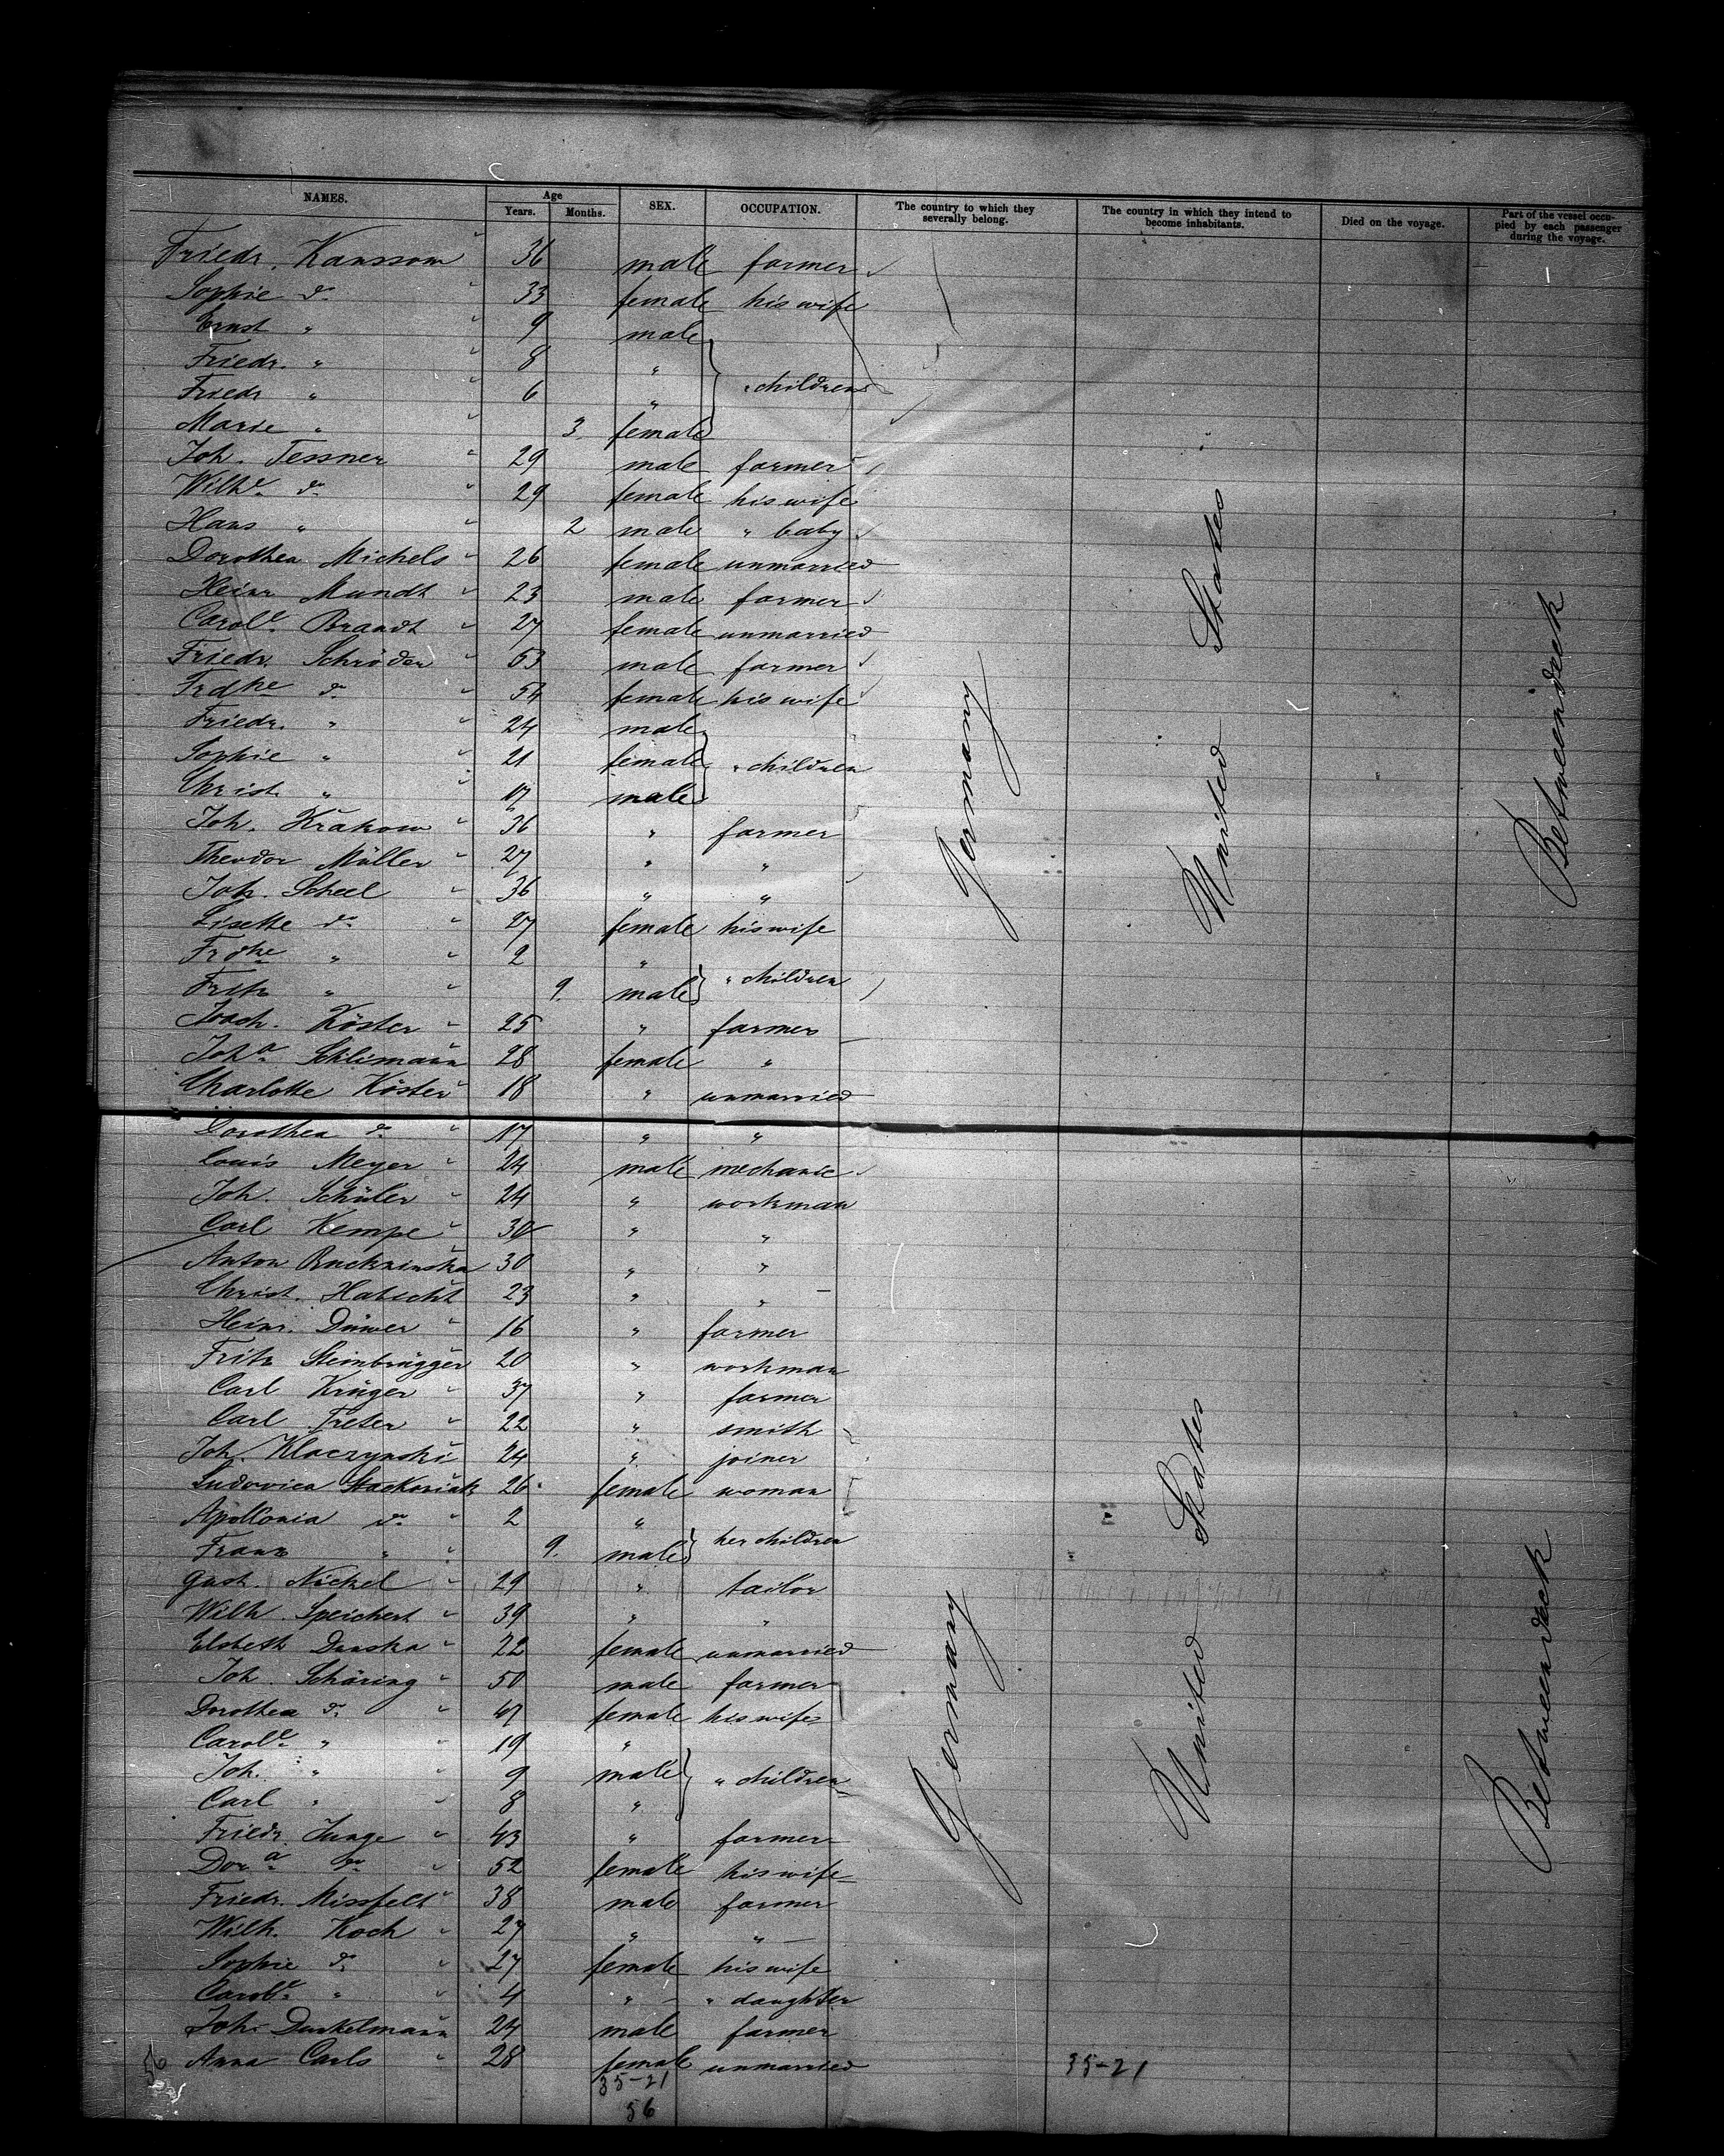 NAMES. Age SEX. OCCUPATION. The country to which they severally belong. The country in which they intend to become inhabitants. Died on the voyage. Part of the vessel occupied by each passenger during the voyage.
Years. Months.
Friedr. Kanssow " 36 male farmer
Sophie do " 33 female his wife
Ernst " " 9 male
Friedr. " " 8 "
Friedr " " 6 " " children
Marie " " 3. female
Joh. Tessner " 29 male farmer
Wilhe do " 29 female his wife
Hans " " 2 male " baby
Dorothea Michels " 26 female unmarried
Heinr Mundt " 23 male farmer
Carole Brandt " 27 female unmarried
Friedr. Schröder " 53 male farmer
Frdke do " 54 female his wife
Friedr. " " 24 male
Sophie " " 21 female " children
Christ. " " 17 male
Joh. Krakow " 36 " farmer
Theodor Müller " 27 " "
Joh. Scheel " 36 " "
Lisette do " 27 female his wife
Frdke " " 2 "
Fritz " " 9. male " children
Joach. Köster " 25 " farmer
Joha Schlimann 28 female "
Charlotte Köster " 18 " unmarried
Dorothea do " 17 " "
Louis Meyer " 24 male mechanic
Joh. Schüler " 24 " workman
Carl Kempe " 30 " "
Anton 30 " "
Christ. Habicht 23 " "
Heinr. Düwer " 16 " farmer
Fritz Steinbrügger 20 " workman
Carl Krüger " 37 " farmer
Carl Freter " 22 " smith
Joh. Klaczynski 24 " joiner
Ludovica 26 female woman
Apollonia do " 2 "
Franz " " 9. male her children
Gust. Nickel " 29 " tailor
Wilh. Speichert " 39 " "
Elsbeth Danska " 22 female unmarried
Joh. Schäring " 50 male farmer
Dorothea do " 47 female his wife
Carole " " 19 "
Joh. " " 9 male " children
Carl " " 8 "
Friedr. Junge " 43 " farmer
Dora do " 52 female his wife
Friedr. Missfeldt 38 male farmer
Wilh. Koch " 27 " "
Sophie do " 27 female his wife
Carole " " 4 " " daughter
Joh. Dunkelmann 24 male farmer
Anna Carls " 28 female unmarried
56
35-21
56
35-21
Germany
United States
Betweendeck
Germany
United States
Betweendeck